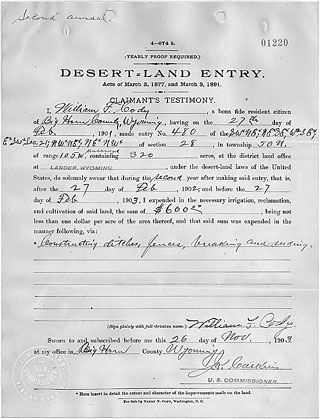 Second annual.
4—074 b.
01220
(YEARLY PROOF REQUIRED.)
DESERT-LAND ENTRY.
Acts of March 3, 1877, and March 3, 1891.
CLAIMANT'S TESTIMONY.
I, William F. Cody, a bona fide resident citizen
of Big Horn County, Wyoming, having on the 27th day of
Feb, 1901, made entry No. 480 of the
of section 28, in township 50 N.
of range 105 W, containing 320 acres, at the district land office
at LANDER, WYOMING, under the desert-land laws of the United
States, do solemnly swear that during the second year after making said entry, that is,
after the 27 day of Feb, 1902, and before the 27
day of Feb, 1903, I expended in the necessary irrigation, reclamation,
and cultivation of said land, the sum of $600, being not
less than one dollar per acre of the area thereof, and that said sum was expended in the
manner following, viz:
* Constructing ditches, fences, breaking and seeding.
(Sign plainly with full christian name.) William F. Cody
Sworn to and subscribed before me this 26 day of Nov, 1903
at my office in Big Horn County Wyoming
U. S. COMMISSIONER.
* Here insert in detail the extent and character of the improvements made on the land.
For Sale by Henry N. Copp, Washington, D. C.